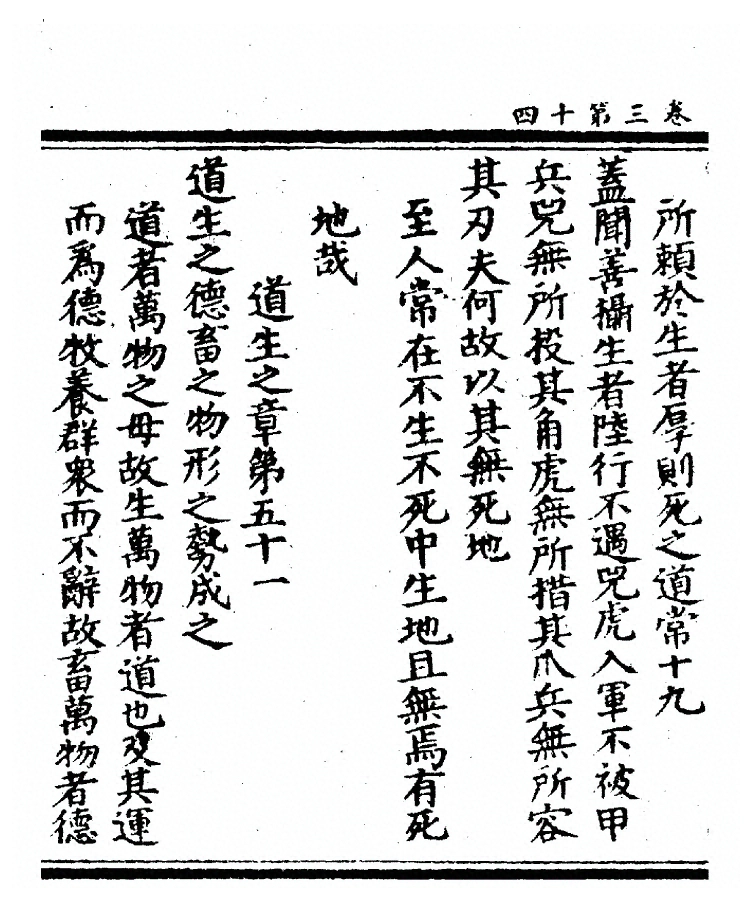 卷三第十四
所賴於生者厚則死之道常十九
蓋聞善攝生者陸行不遇兕虎入軍不被甲
兵兕無所投其角虎無所措其爪兵無所容
其刃夫何故以其無死地
至人常在不生不死中生地且無焉有死
地哉
道生之章第五十一
道生之德畜之物形之勢成之
道者萬物之母故生萬物者道也及其運
而爲德牧養群衆而不辭故畜萬物者德